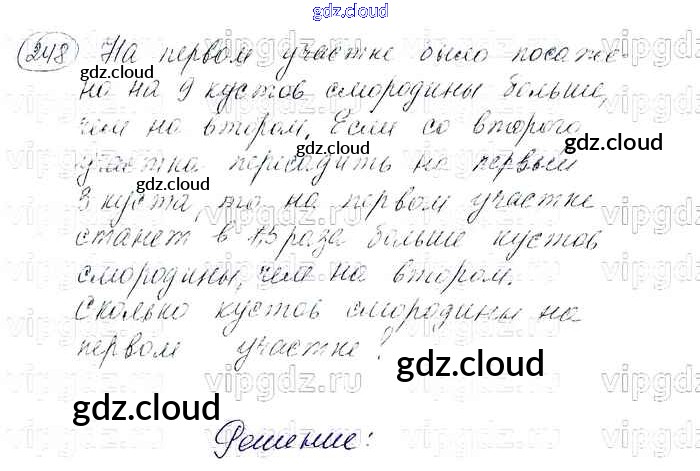 gdz.cloud
248 На первом участке было посаже-
но на 9 кустов смородины больше,
чем на втором. Если со второго
участка пересадить на первый
3 куста, то на первом участке
станет в 1,5 раза больше кустов
смородины, чем на втором.
Сколько кустов смородины на
первом участке?
gdz.cloud
gdz.cloud
gdz.cloud
gdz.cloud
gdz.cloud
gdz.cloud
gdz.cloud
vipgdz.ru
Решение: